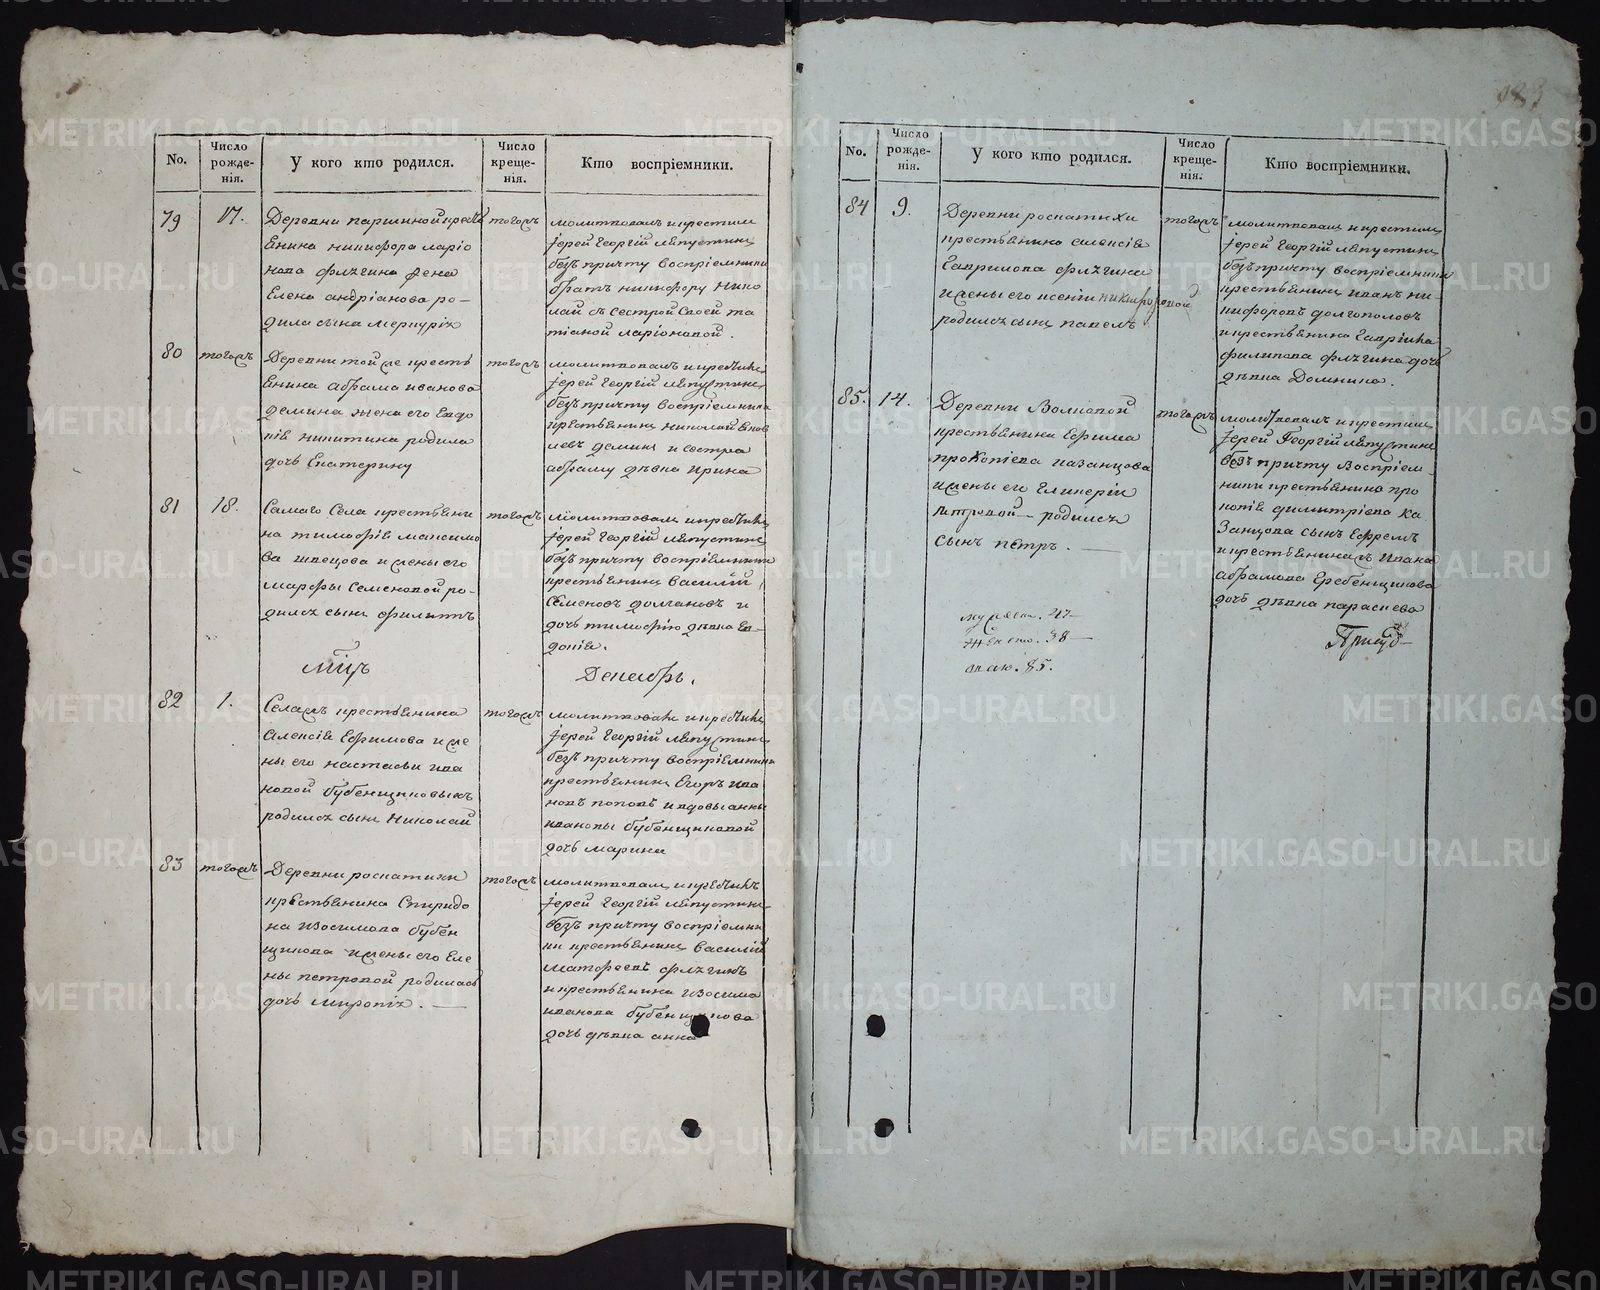 No.
Число рожде-нія.
У кого кто родился.
Число креще-нія.
Кто воспріемники.
79
17.
Деревни паршиной крестъ
янина никифора ларіо
нова флягина жена
Елена андріанова ро-
дила сына меркурія
тогожъ
молитвовалъ и крестилъ
Іерей Георгій
безъ причту воспріемники
братъ никифору нико
лай съ сестрой своей та
тіаной ларіоновой.
80
тогожъ
Деревни той же кресть
янина абрама иванова
демина жена его Евдо
кія никитина родила
дочь Екатерину
тогожъ
молитвовалъ и
Іерей Георгій
безъ причту воспріемники
крестьянинъ николай яков
левъ деминъ и сестра
абраму дѣвка ирина
81
18.
Самаго Села крестьяни
на тимофѣя максимо
ва швецова и жены его
марфы Семеновой ро-
дился сынъ филипъ
тогожъ
молитвовалъ и
Іерей Георгій
безъ причту воспріемники
крестьянинъ василій
Семеновъ долгановъ и
дочь тимофѣю дѣвка Ев-
докія.
мцъ
Декабрь.
82
1.
Селажъ крестьянина
алексія Ефимова и же
ны его настасьи ива
новой бубенщиковыхъ
родился сынъ николай
тогожъ
молитвовалъ и
Іерей Георгій
безъ причту воспріемники
крестьянинъ Егоръ ива
новъ поповъ и вдовы анны
ивановы бубенщиковой
дочь марина
83
тогожъ
Деревни роскатихи
крестьянина Спиридо
на изосимова бубен
щикова и жены его Еле
ны петровой родилась
дочь миропія.
тогожъ
молитвовалъ и
Іерей Георгій
безъ причту воспріемни
ки крестьянинъ василій
матфеевъ флягинъ
и крестьянина изосима
иванова бубенщикова
дочь дѣвка анна
No.
Число рожде-нія.
У кого кто родился.
Число креще-нія.
Кто воспріемники.
84
9.
Деревни роскатихи
крестьянина алексія
Гаврилова флягина
и жены его ксеніи никифоровой
родился сынъ павелъ
тогожъ
молитвовалъ и крестилъ
Іерей Георгій
безъ причту воспріемники
крестьянинъ иванъ ни-
кифоровъ долгополовъ
и крестьянина Гавріила
филипова флягина дочь
дѣвка Домнина.
85.
14.
Деревни Волковой
крестьянина Ефима
прокопіева казанцова
и жены его Гликеріи
петровой родился
сынъ петръ.
тогожъ
молитвовалъ и крестилъ
Іерей Георгій
безъ причту воспріем-
ники крестьянина про
копія димитріева ка
занцова сынъ Ефремъ
и крестьянина Ивана
абрамова Гребенщикова
дочь дѣвка параскева
мужеск. 47
Женско. 38
85.